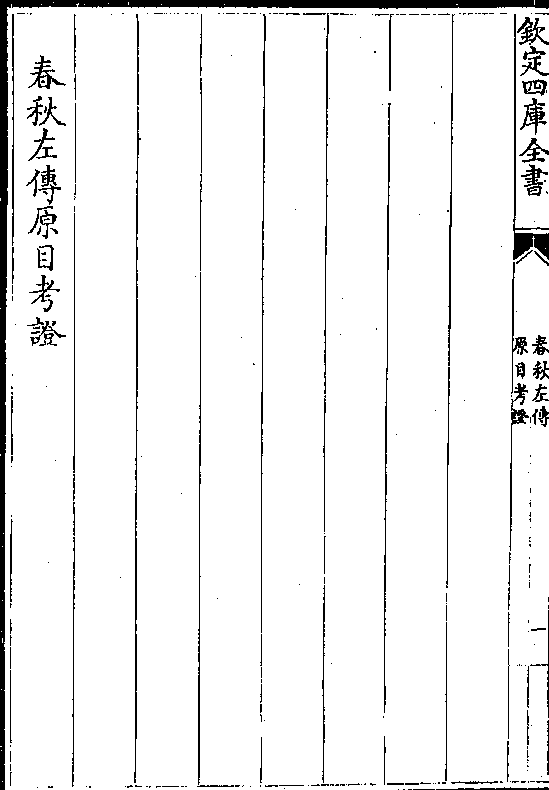 欽定四庫全書
春秋左傳
原目考證
一
春秋左傳原目考證